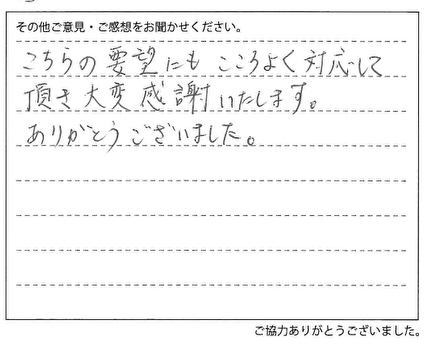 その他ご意見・ご感想をお聞かせください。
こちらの要望にもこころよく対応して
頂き大変感謝いたします。
ありがとうございました。
ご協力ありがとうございました。